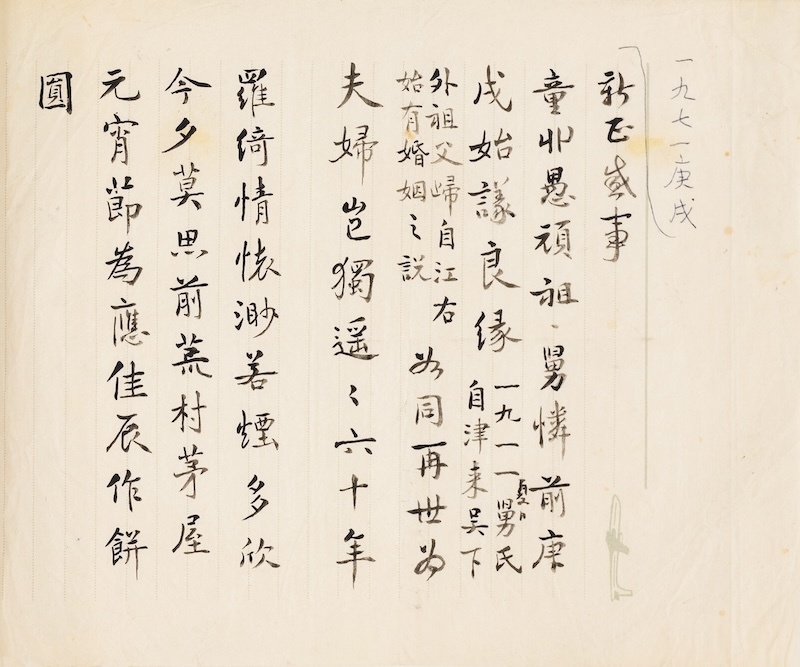 一九七一庚戌
新正感事
童丱愚頑祖、舅憐前庚
戌始議良緣
一九一一夏日舅氏
自津来吴下
外祖父歸自江右
始有婚姻之説
如同再世為
夫婦岂獨遥〻六十年
羅綺情懐渺若煙多欣
今夕莫思前荒村茅屋
元宵節為應佳辰作餅
圓